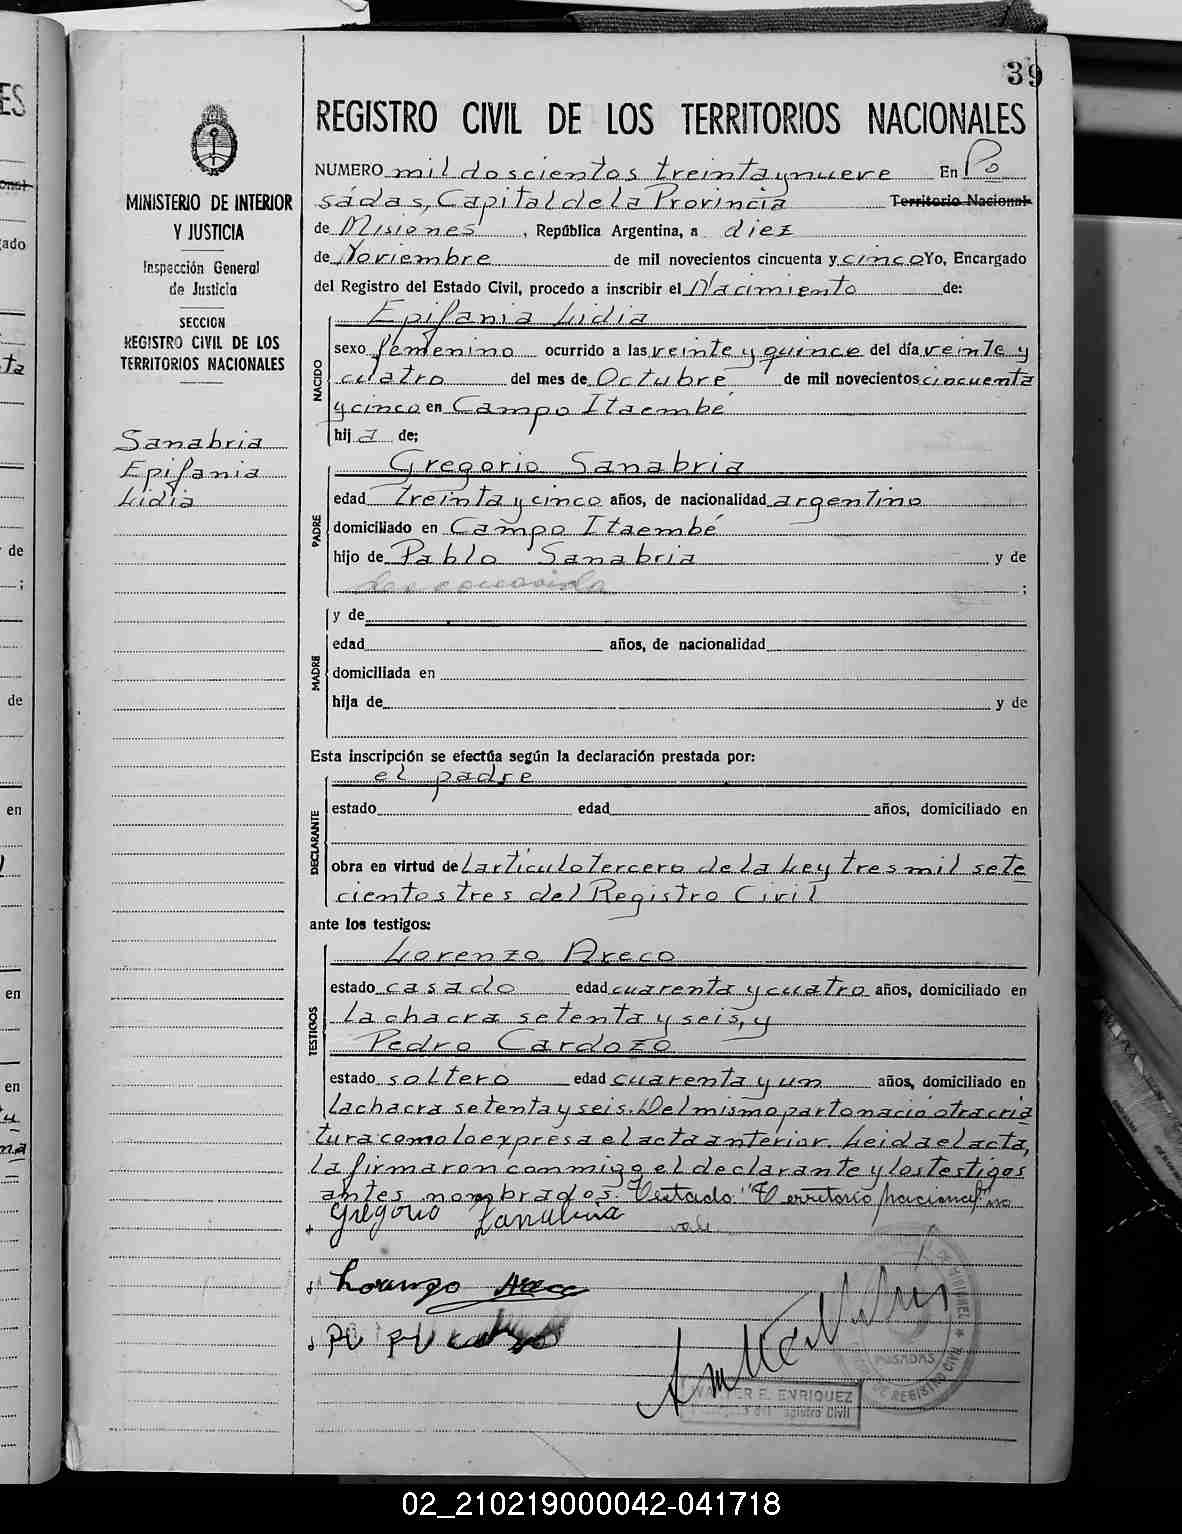 39
REGISTRO CIVIL DE LOS TERRITORIOS NACIONALES
MINISTERIO DE INTERIOR
Y JUSTICIA
Inspección General
de Justicia
SECCION
REGISTRO CIVIL DE LOS
TERRITORIOS NACIONALES
Sanabria
Epifania
Lidia
NUMERO mil doscientos treinta y nueve En Po
sádas, Capital de la Provincia Territorio Nacional
de Misiones, República Argentina, a diez
de Noviembre de mil novecientos cincuenta y cinco Yo, Encargado
del Registro del Estado Civil, procedo a inscribir el Nacimiento de:
NACIDO
Epifania Lidia
sexo femenino ocurrido a las veinte y quince del día veinte y
cuatro del mes de Octubre de mil novecientos cincuenta
y cinco en Campo Itaembé
hija de;
PADRE
Gregorio Sanabria
edad treinta y cinco años, de nacionalidad argentino
domiciliado en Campo Itaembé
hijo de Pablo Sanabria y de
desconocida ;
MADRE
y de
edad años, de nacionalidad
domiciliada en
hija de y de
Esta inscripción se efectúa según la declaración prestada por:
DECLARANTE
el padre
estado edad años, domiciliado en
obra en virtud del artículo tercero de la Ley tres mil sete
cientos tres del Registro Civil
ante los testigos:
TESTIGOS
Lorenzo Areco
estado casado edad cuarenta y cuatro años, domiciliado en
la chacra setenta y seis, y
Pedro Cardozo
estado soltero edad cuarenta y un años, domiciliado en
la chacra setenta y seis. Del mismo parto nació otra cria
tura como lo expresa el acta anterior. Leida el acta,
la firmaron conmigo el declarante y los testigos
antes nombrados. Testado: "Territorio Nacional" no
vale
Gregorio Sanabria
Lorenzo Areco
POSADAS
DE REGISTRO CIVIL
WALTER E. ENRIQUEZ
Registro Civil
02_210219000042-041718